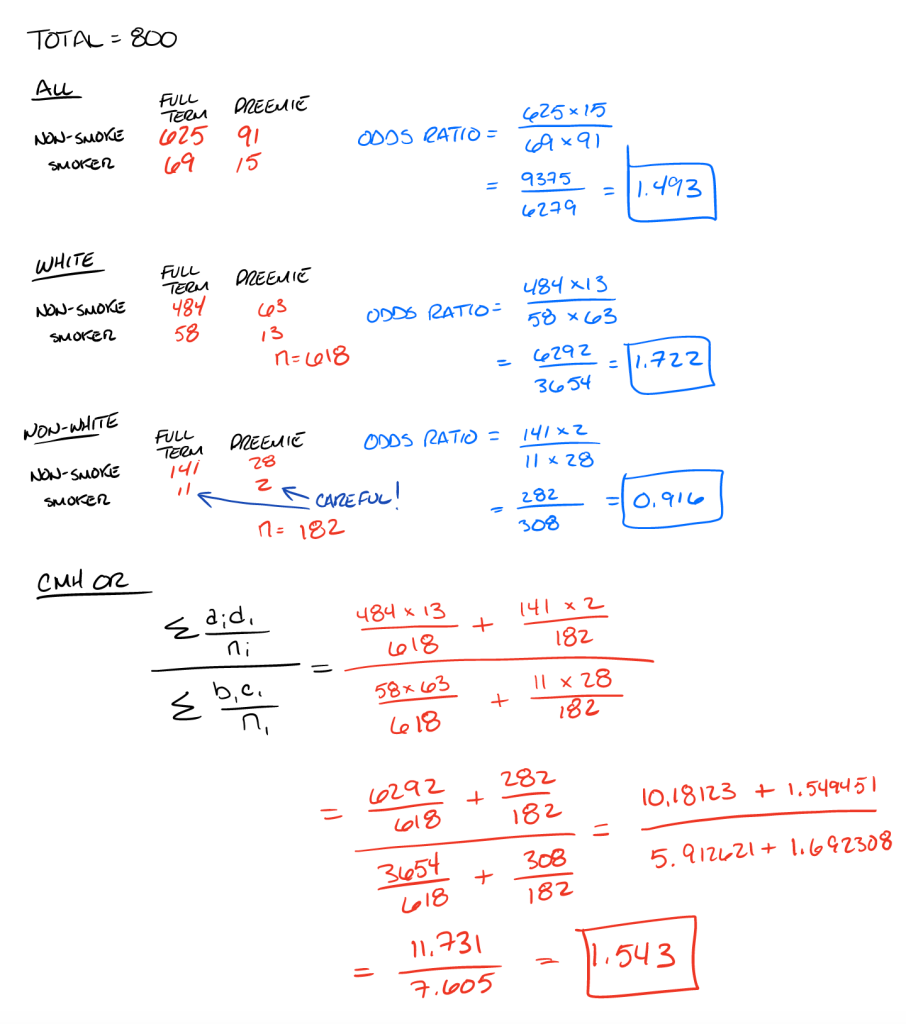 TOTAL = 800
ALL
FULL TERM PREEMIE
NON-SMOKE 625 91
SMOKER 69 15
ODDS RATIO = 625 × 15 / 69 × 91
= 9375 / 6279 = 1.493
WHITE
FULL TERM PREEMIE
NON-SMOKE 484 63
SMOKER 58 13
n=618
ODDS RATIO = 484 × 13 / 58 × 63
= 6292 / 3654 = 1.722
NON-WHITE
FULL TERM PREEMIE
NON-SMOKE 141 28
SMOKER 11 2
CAREFUL!
n= 182
ODDS RATIO = 141 × 2 / 11 × 28
= 282 / 308 = 0.916
CMH OR
Σ aᵢdᵢ / nᵢ
Σ bᵢcᵢ / nᵢ
= 484 × 13 / 618 + 141 × 2 / 182
58 × 63 / 618 + 11 × 28 / 182
= 6292 / 618 + 282 / 182
3654 / 618 + 308 / 182
= 10.18123 + 1.549451
5.912621 + 1.692308
= 11.731 / 7.605 = 1.543